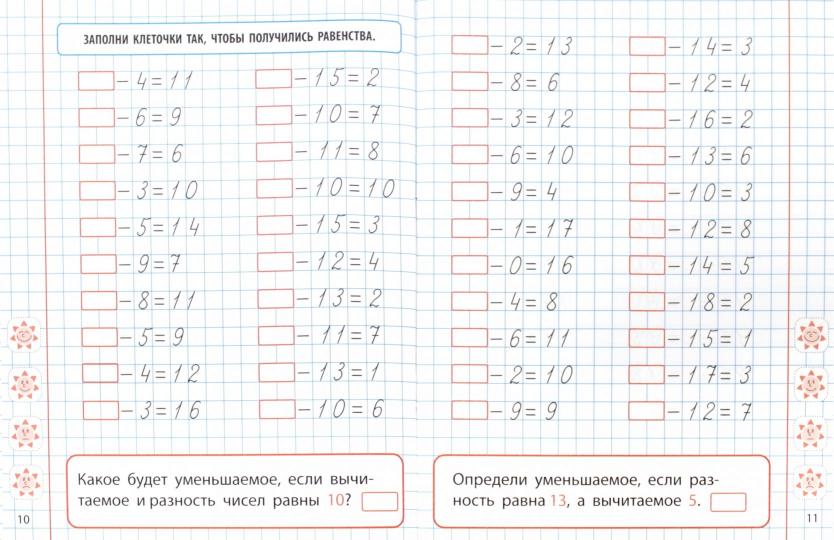 ЗАПОЛНИ КЛЕТОЧКИ ТАК, ЧТОБЫ ПОЛУЧИЛИСЬ РАВЕНСТВА.
– 4 = 11
– 6 = 9
– 7 = 6
– 3 = 10
– 5 = 14
– 9 = 7
– 8 = 11
– 5 = 9
– 4 = 12
– 3 = 16
– 15 = 2
– 10 = 7
– 11 = 8
– 10 = 10
– 15 = 3
– 12 = 4
– 13 = 2
– 11 = 7
– 13 = 1
– 10 = 6
Какое будет уменьшаемое, если вычи-
таемое и разность чисел равны 10?
10
– 2 = 13
– 8 = 6
– 3 = 12
– 6 = 10
– 9 = 4
– 1 = 17
– 0 = 16
– 4 = 8
– 6 = 11
– 2 = 10
– 9 = 9
– 14 = 3
– 12 = 4
– 16 = 2
– 13 = 6
– 10 = 3
– 12 = 8
– 14 = 5
– 18 = 2
– 15 = 1
– 17 = 3
– 12 = 7
Определи уменьшаемое, если раз-
ность равна 13, а вычитаемое 5.
11